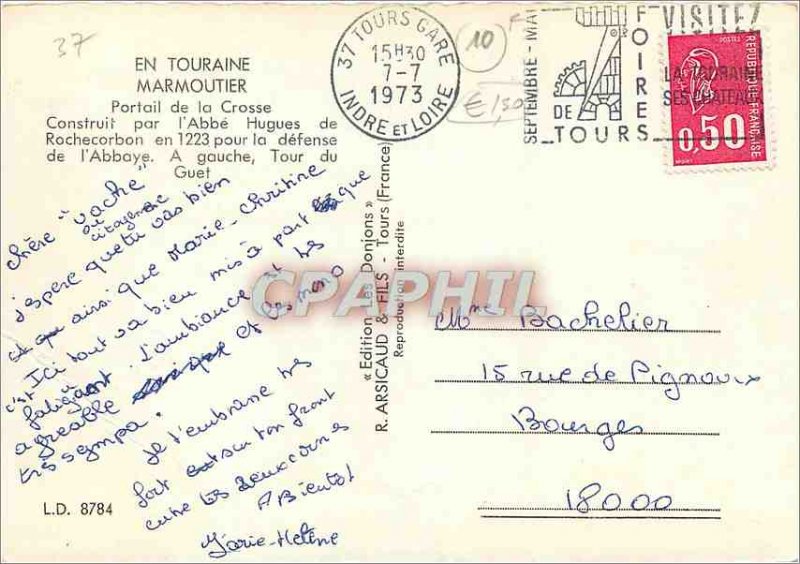 37
EN TOURAINE
MARMOUTIER
Portail de la Crosse
Construit par l'Abbé Hugues de
Rochecorbon en 1223 pour la défense
de l'Abbaye. A gauche, Tour du
Guet
chère "vache"
citoyenne
j'espere que tu vas bien
et que ainsi que Marie-Christine
Ici tout va bien mis à part que
c'est fatigant. l'ambiance est très
agreable et les mono
très sympa.
Je t'embrasse très
fort sur ton front
entre tes deux cornes
A Bientôt
Marie-Helène
L.D. 8784
« Edition Les Donjons »
R. ARSICAUD & FILS - Tours (France)
Reproduction interdite
37 TOURS GARE
15H30
7-7
1973
INDRE ET LOIRE
10
€ 1,50
SEPTEMBRE - MAI
FOIRES
DE
TOURS
VISITEZ
LA TOURAINE
SES CHATEAUX
POSTES
REPUBLIQUE FRANÇAISE
0,50
CPAPHIL
Mme Bachelier
15 rue de Pignoux
Bourges
18000